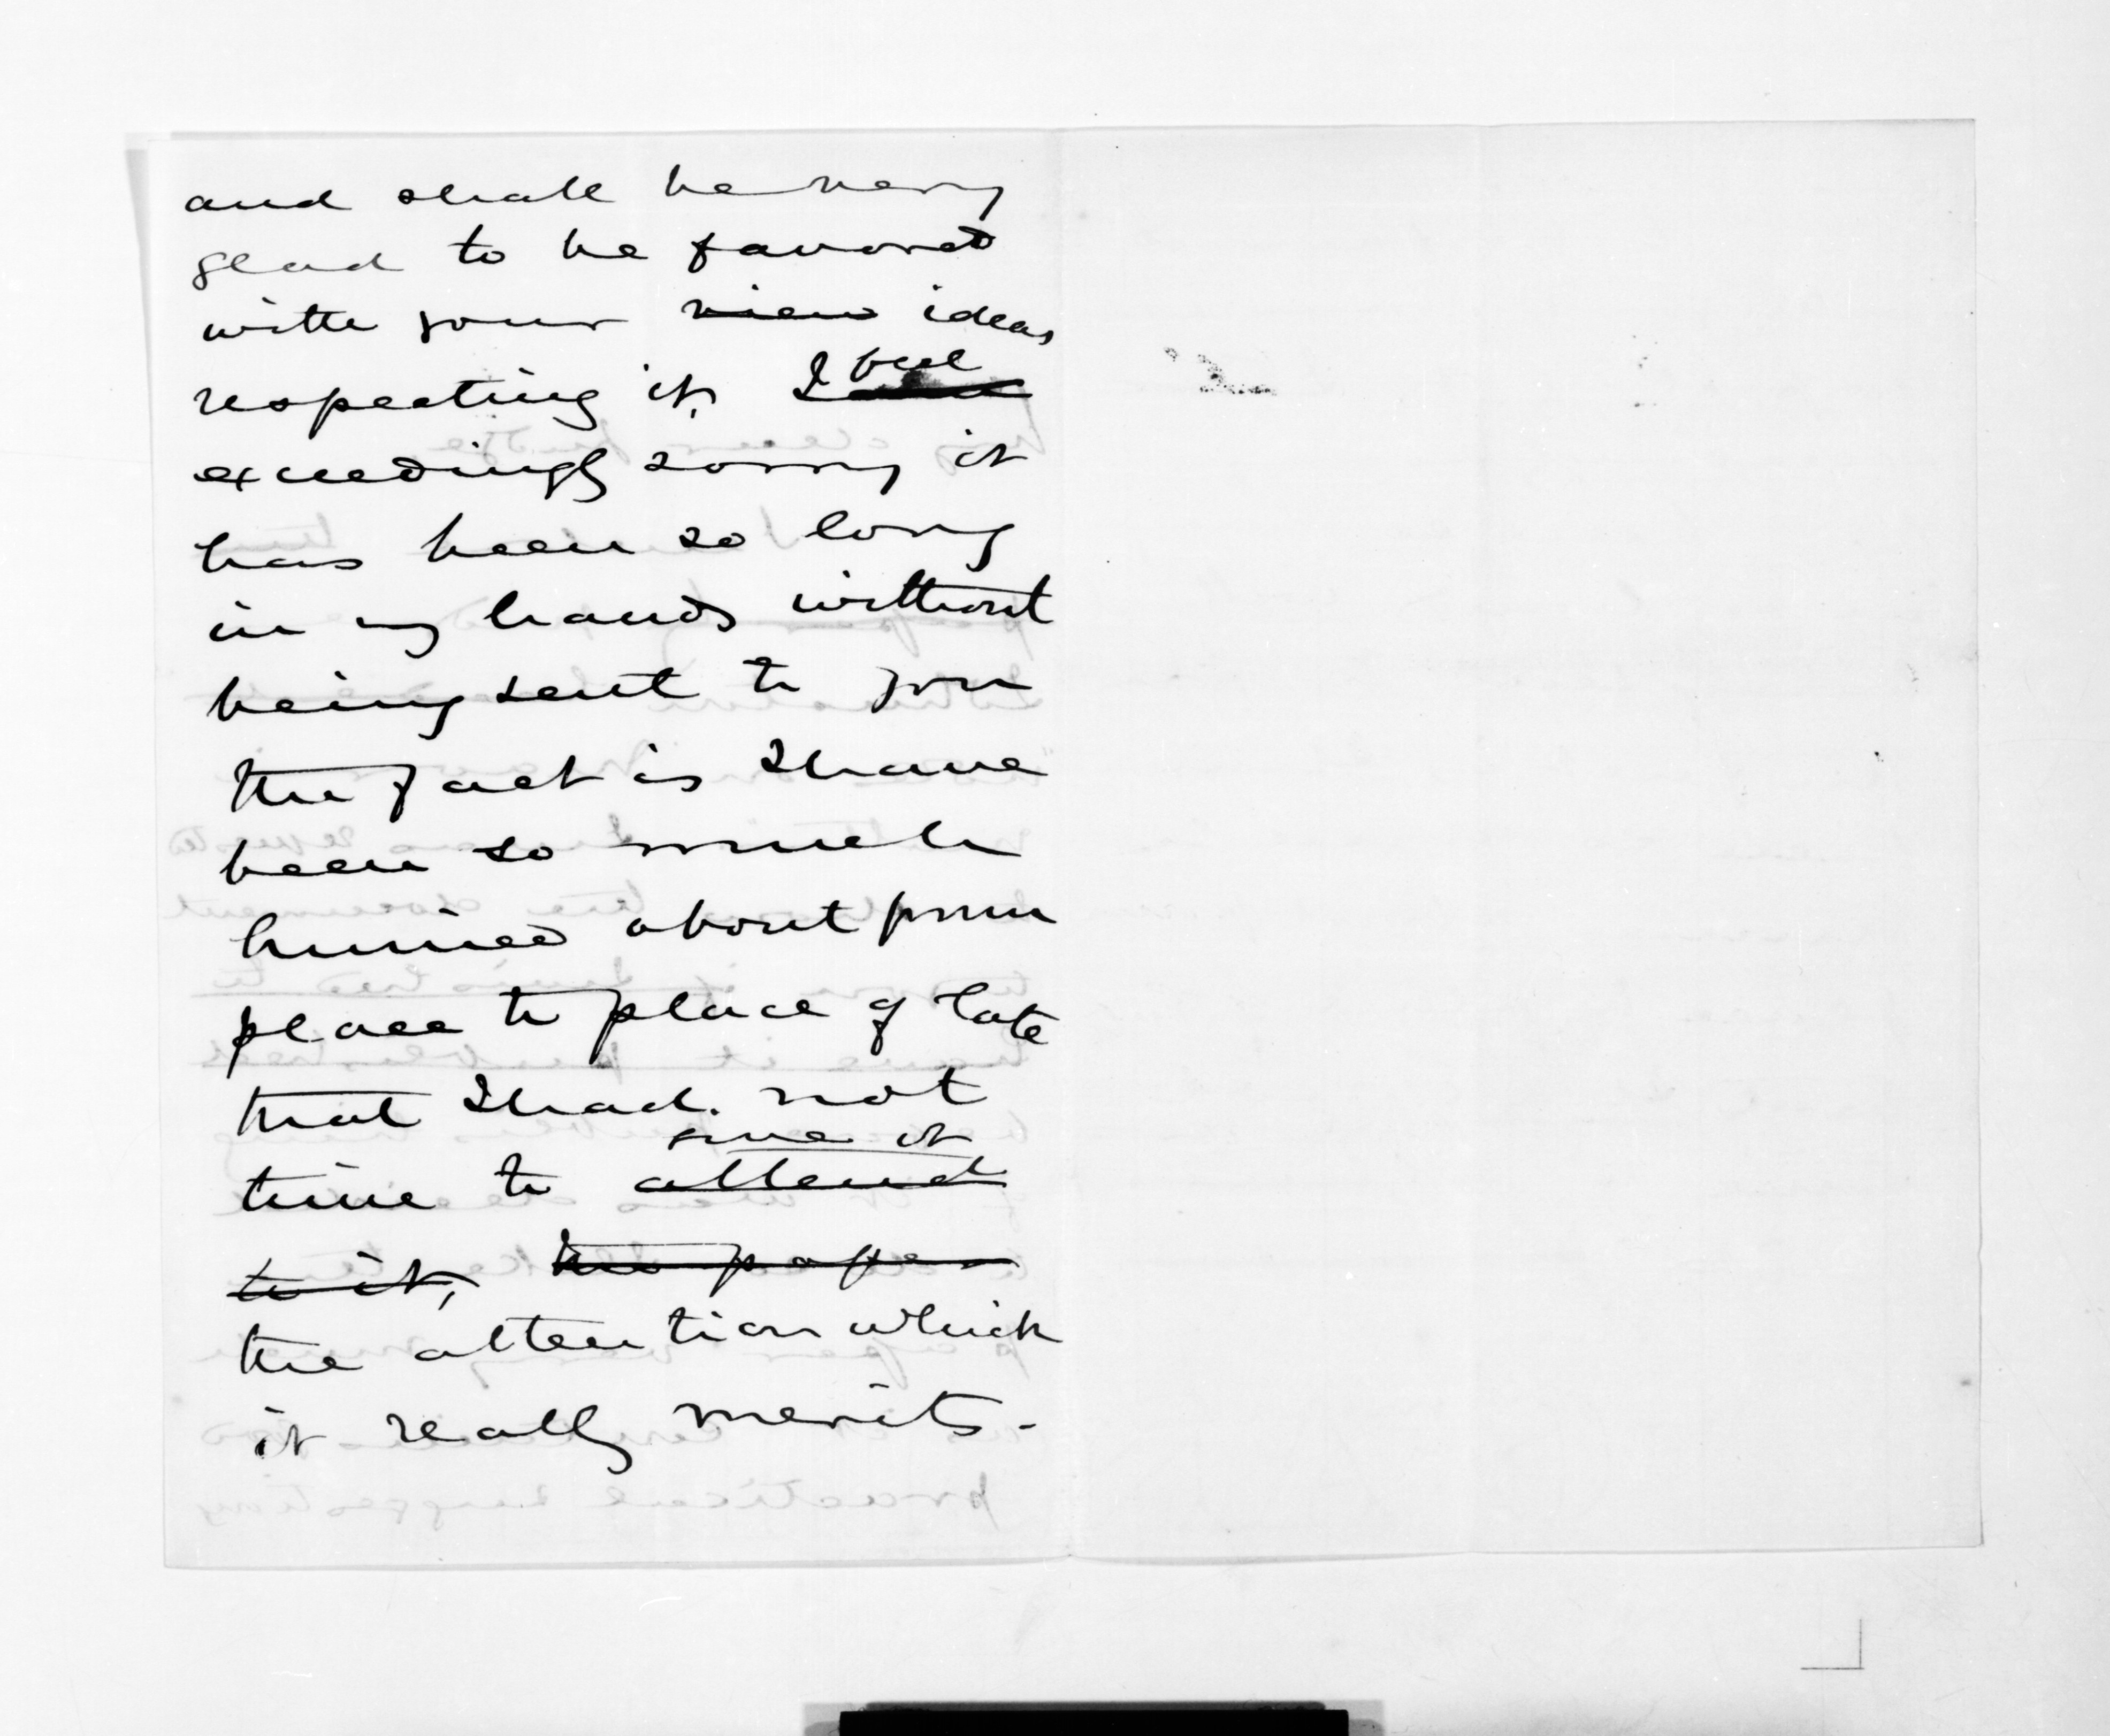 and shall be very
glad to be favored
with your view ideas
respecting it, I feel
exceedingly sorry it
has been so long
in my hands without
being sent to you
the fact is I have
been so much
hurried about from
place to place of late
that I had. not
give it
time to attend
to it, the paper
the attention which
it really merits.